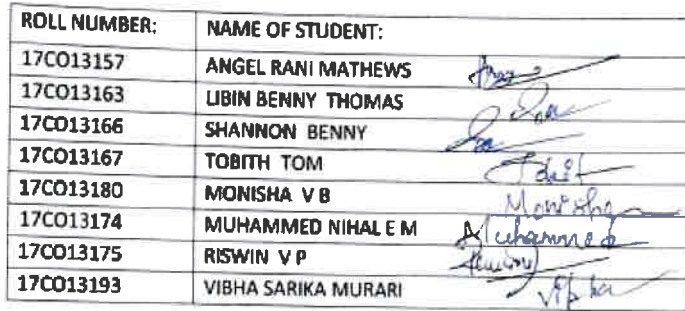 ROLL NUMBER: NAME OF STUDENT:
17CO13157 ANGEL RANI MATHEWS
17CO13163 LIBIN BENNY THOMAS
17CO13166 SHANNON BENNY
17CO13167 TOBITH TOM
17CO13180 MONISHA V B Monisha
17CO13174 MUHAMMED NIHAL E M Muhammed
17CO13175 RISWIN V P
17CO13193 VIBHA SARIKA MURARI Vibha